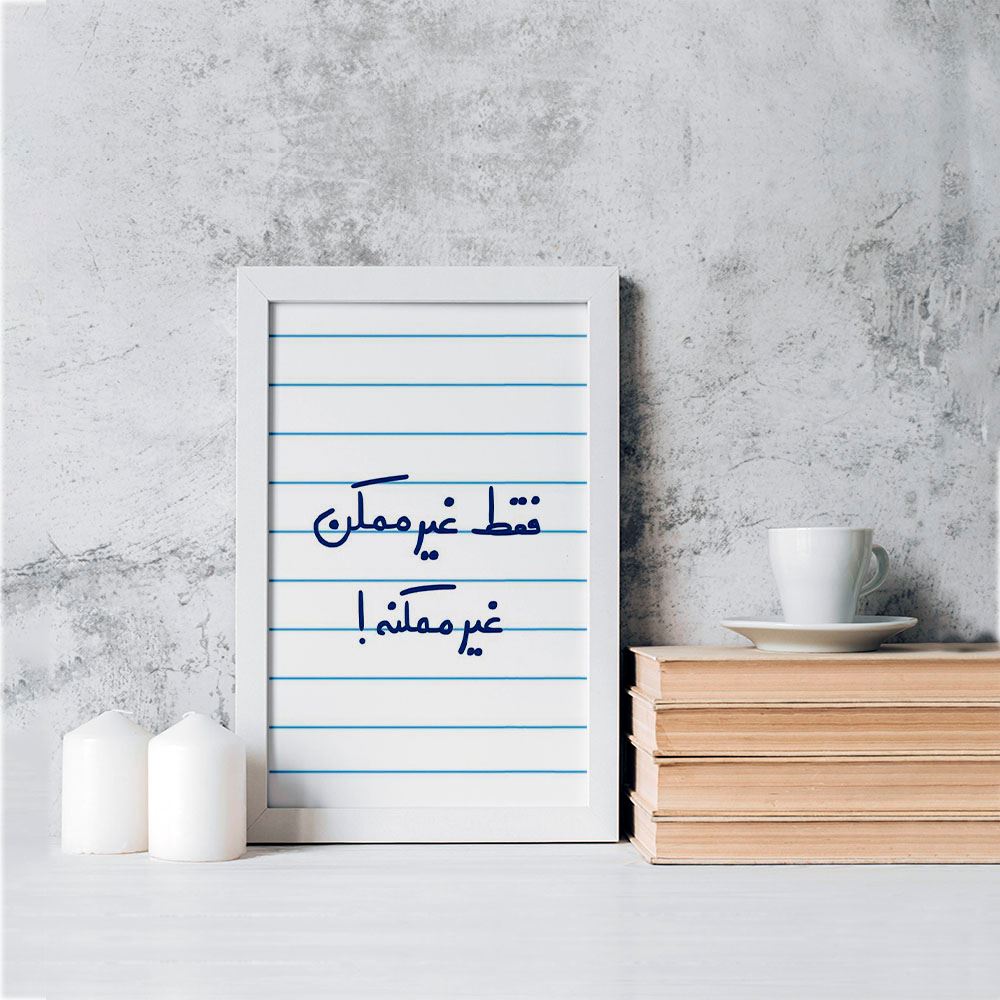 فقط غیرممکن
غیرممکنه!